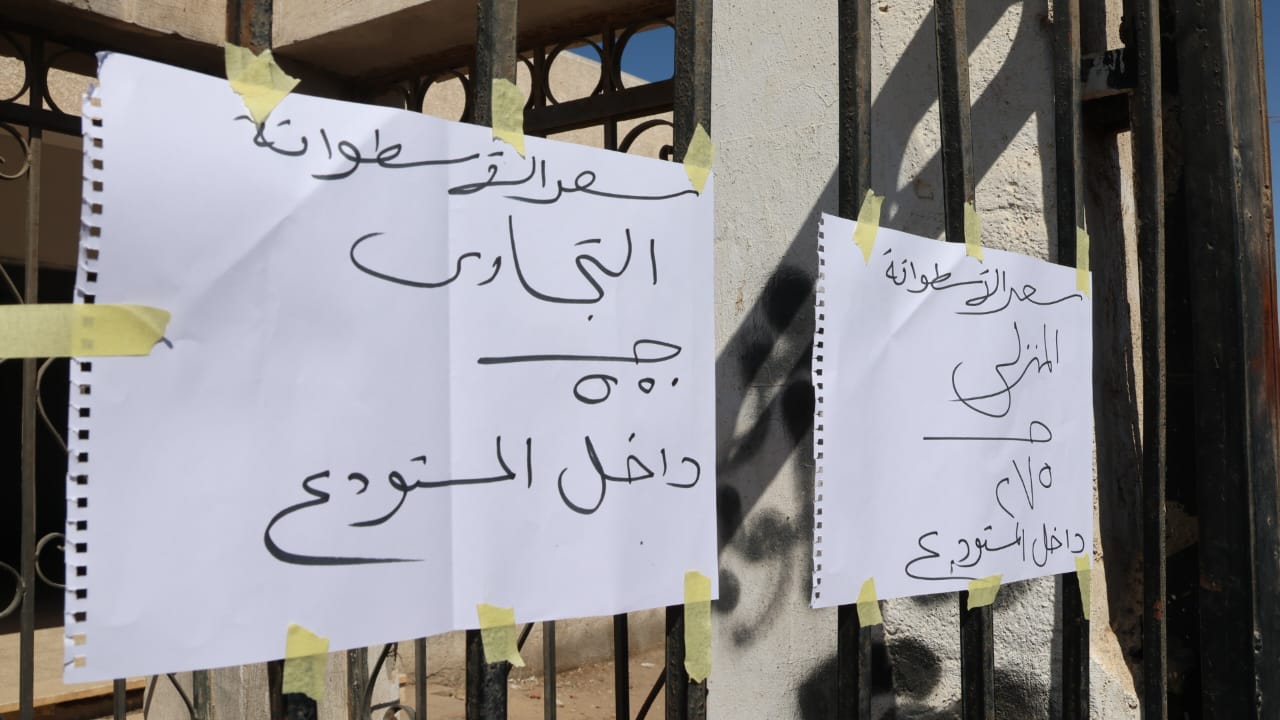 سعر الأسطوانة
التجارى
جـ
٥٥٠
داخل المستودع
سعر الأسطوانة
المنزلى
جـ
٢٧٥
داخل المستودع